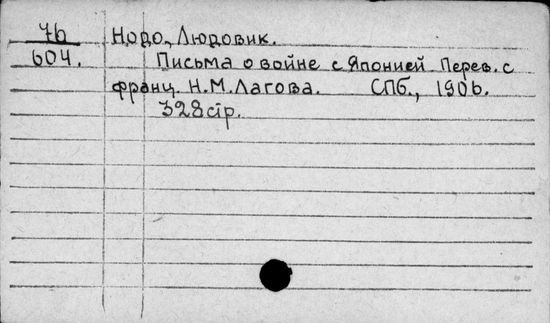 76 Нодо, Людовик.
604. Письма о войне с Японией. Перев. с
франц. Н.М.Лагова. СПб., 1906.
328стр.